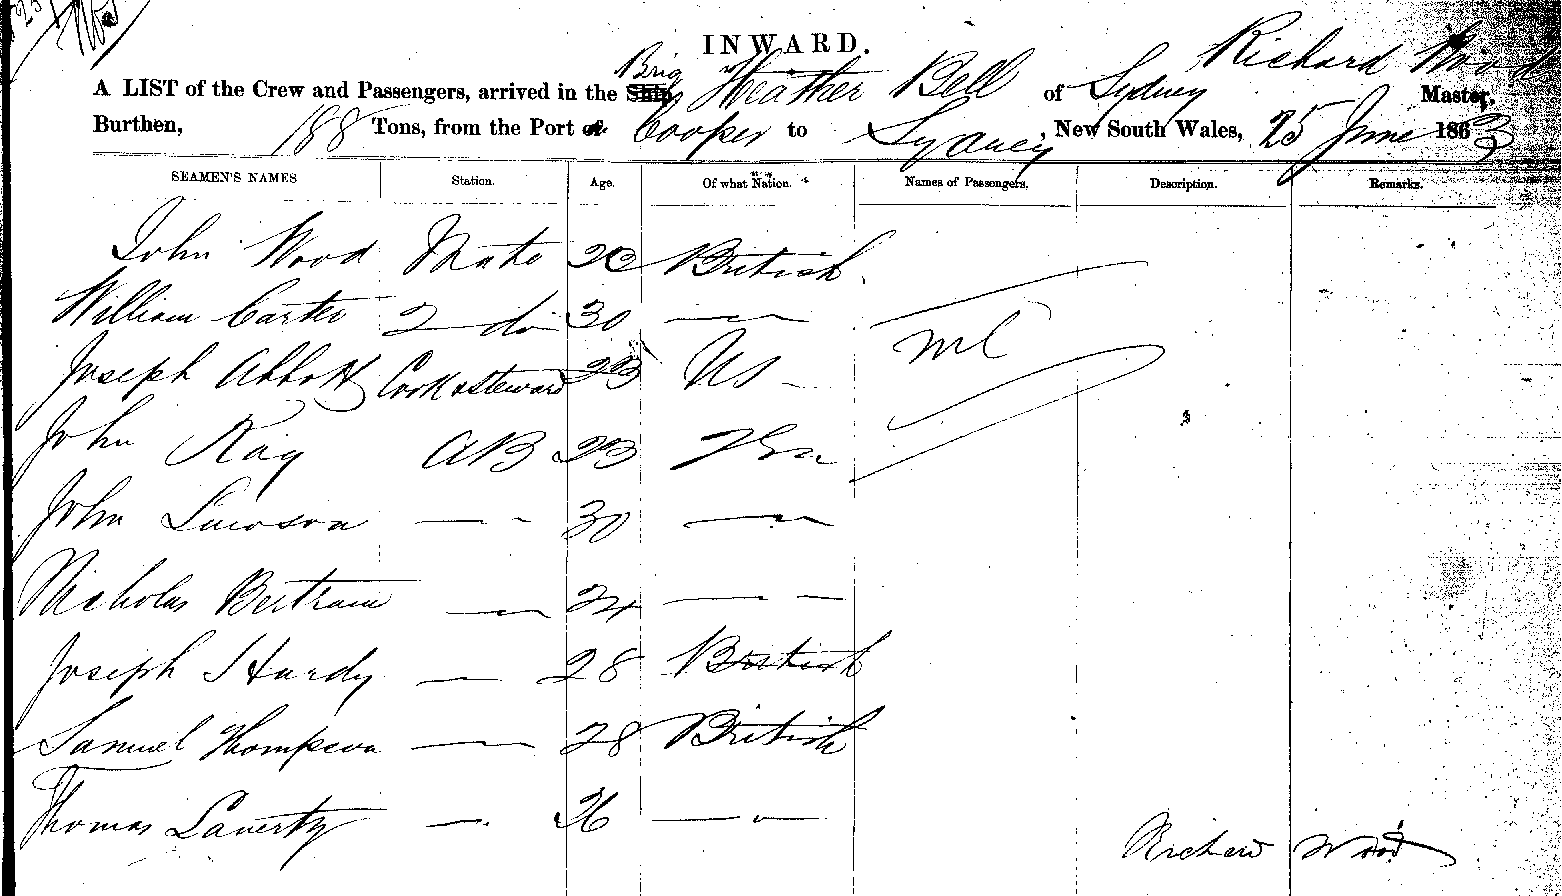 INWARD.
Brig Richard Wood
A LIST of the Crew and Passengers, arrived in the Ship Heather Bell of Sydney Master,
Burthen, 188 Tons, from the Port of Cooper to Sydney, New South Wales, 25 June 1863
SEAMEN'S NAMES Station. Age. Of what Nation. Names of Passengers. Description. Remarks.
John Wood Mate 20 British
William Carter 2 do 30 —
Joseph Abbott Cook & Steward 23 US
John Kay AB 23
John Lawson — 30 —
Nicholas Bertram — 24 —
Joseph Hardy — 28 British
Samuel Thompson — 28 British
Thomas Laverty — 26 —
Richard Wood